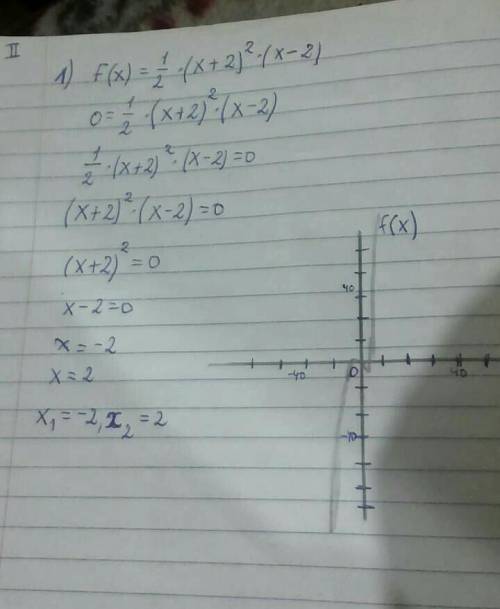 II
1) f(x) = 1/2 · (x+2)² · (x-2)
0 = 1/2 · (x+2)² · (x-2)
1/2 · (x+2)² · (x-2) = 0
(x+2)² · (x-2) = 0
(x+2)² = 0
x-2=0
x=-2
x=2
x₁=-2, x₂=2
f(x)
40
-40 0 40
-10